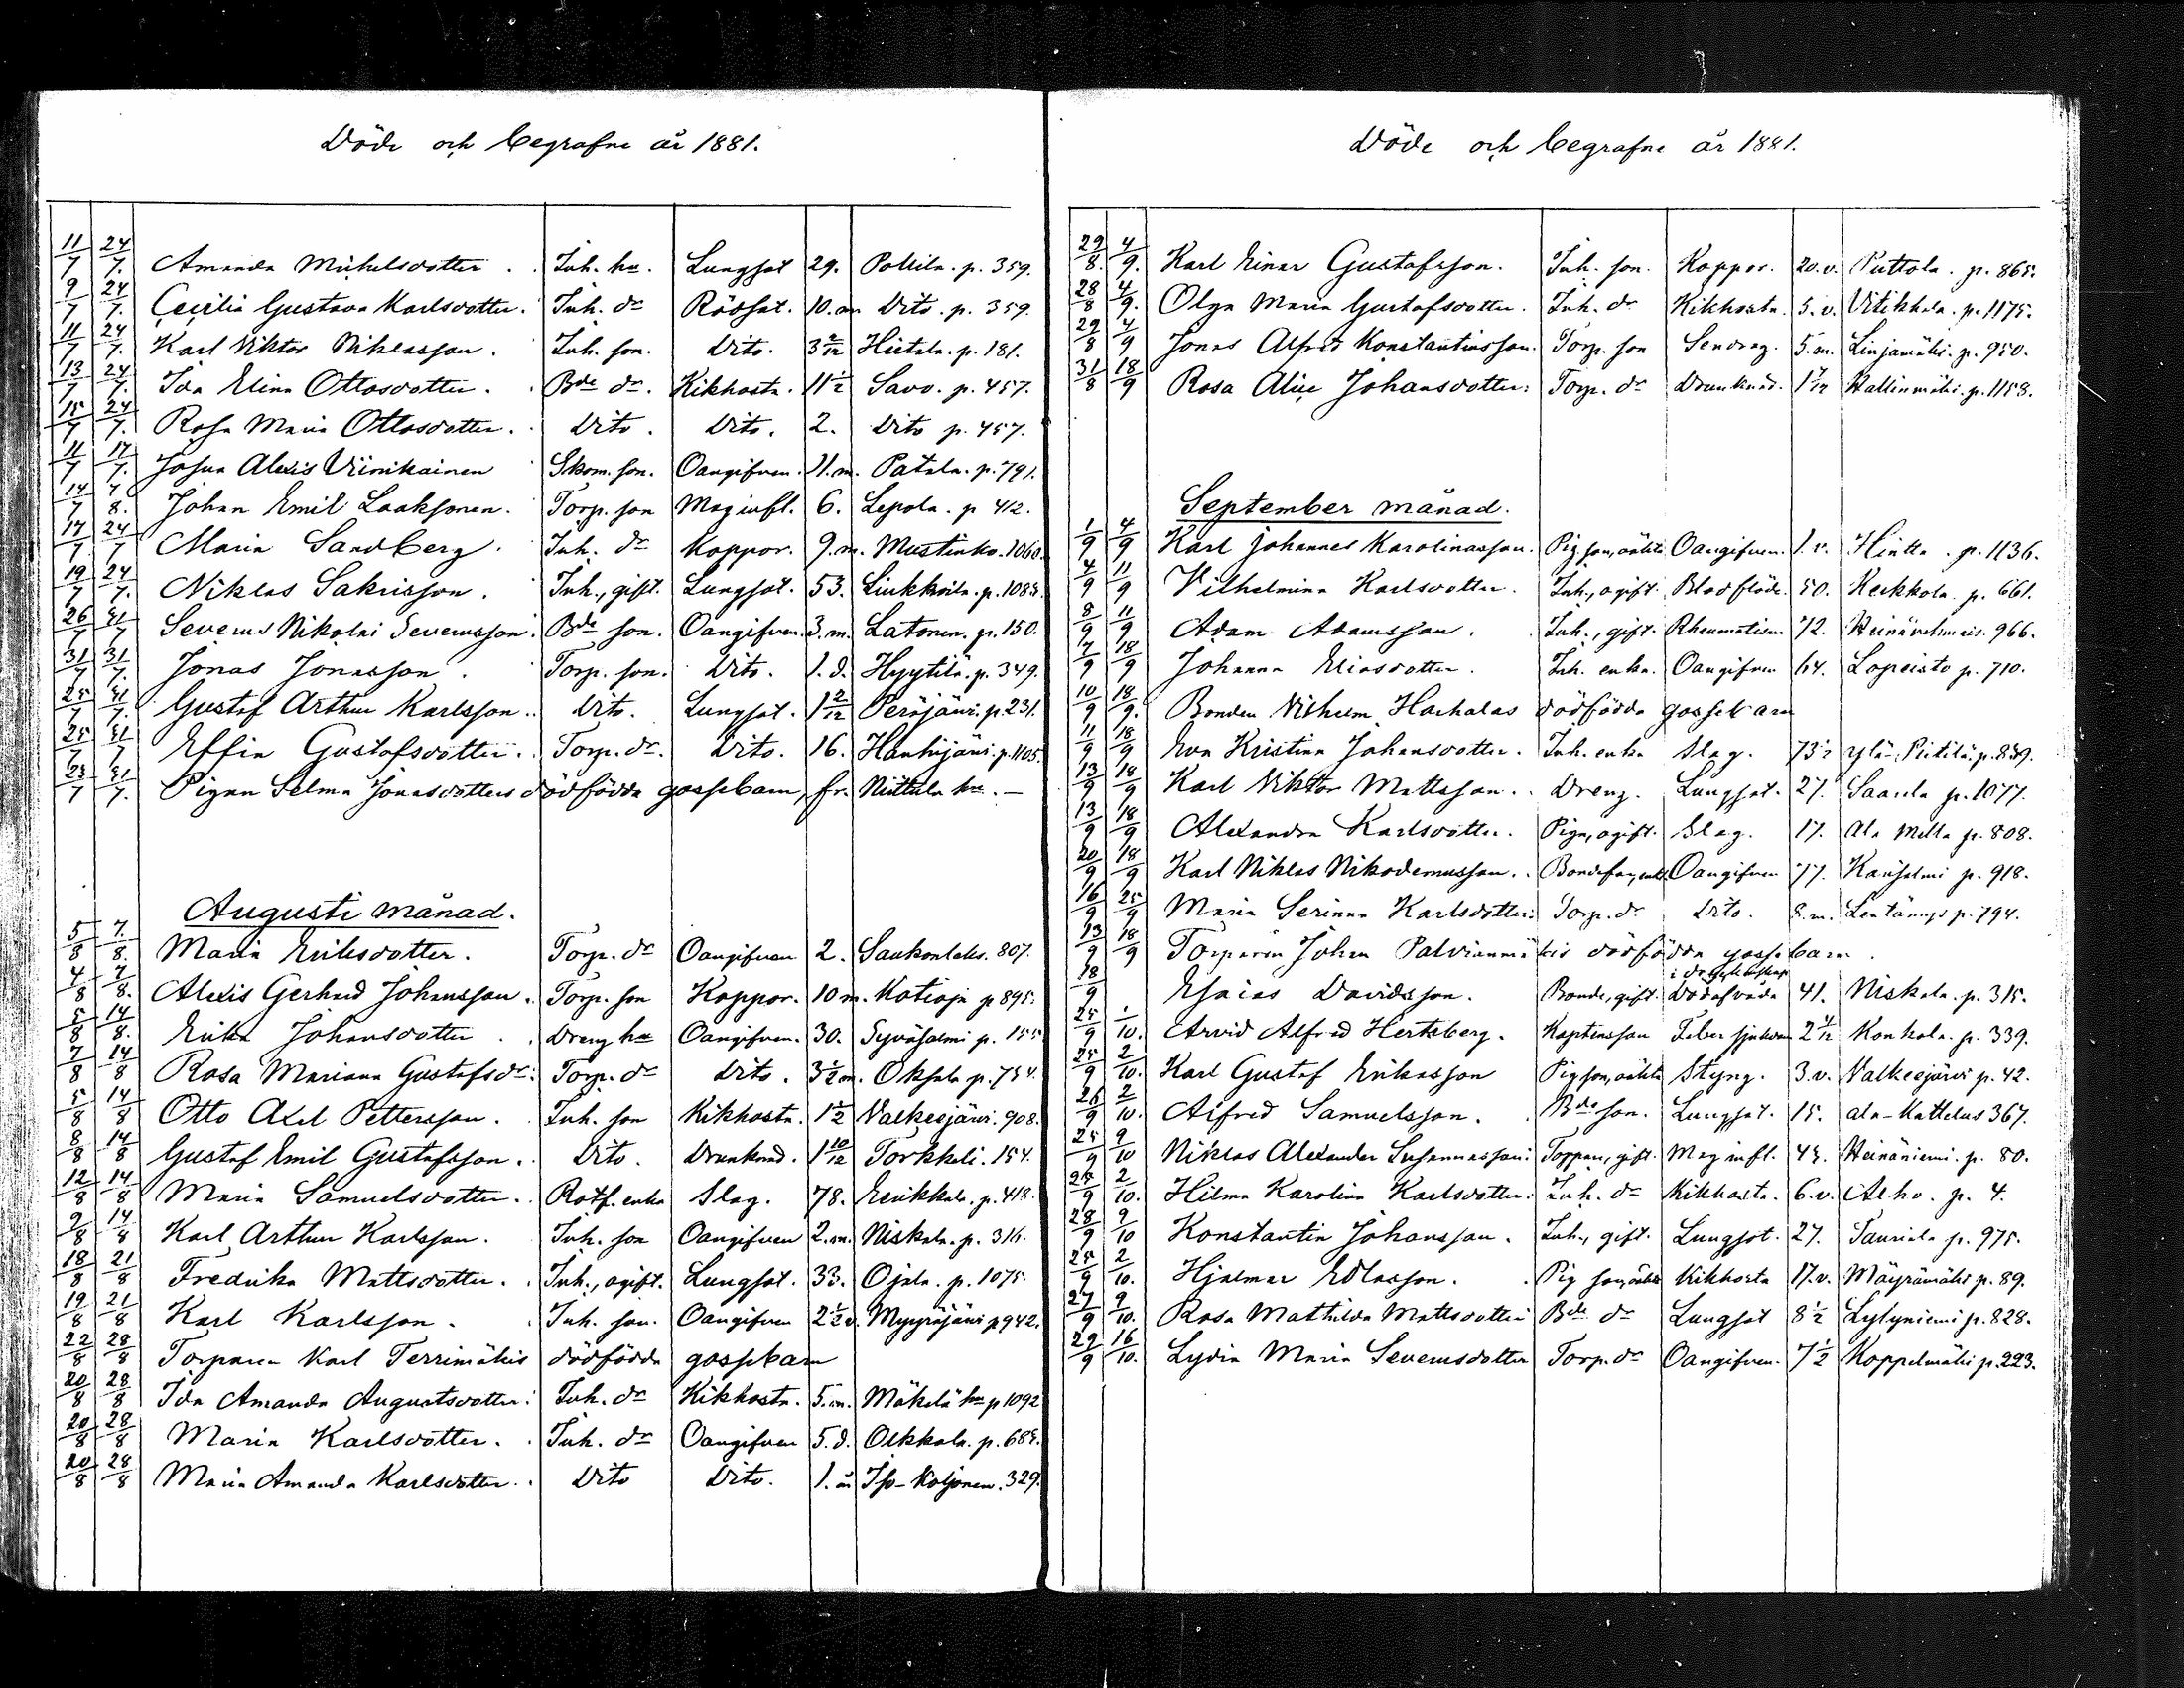 Döde och begrafne år 1881.
11/7 24/7. Amanda Mickelsdotter. Inh. hu. Lungsot 29. Pollila. p. 359.
9/7 24/7. Cecilia Gustava Karlsdotter. Inh. dr Rödsot. 10. m. Dito. p. 359.
11/7 24/7. Karl Viktor Niklasson. Inh. son. Dito. 3 2/12 Hietala. p. 181.
13/7 24/7. Ida Elina Ottosdotter. Bde dr. Kikhosta. 11 1/2 Savo. p. 457.
15/7 24/7. Rosa Maria Ottosdotter. Dito. Dito. 2. Dito p. 457.
11/7 17/7. Josua Alexis Viinikainen Skom. son. Oangifven. 11. m. Patala. p. 791.
14/7 7/8. Johan Emil Laaksonen. Torp. son Maginfl. 6. Lepola. p 412.
17/7 24/7 Maria Sandberg. Inh. dr Koppor. 9. m. Mustinko. 1060.
19/7 24/7. Niklas Sakrisson. Inh., gift. Lungsot. 53. Liukkoila. p. 1085.
26/7 31/7 Severus Nikolai Severusson. Bde son. Oangifven. 3. m. Latonen. p. 150.
31/7 31/7. Jonas Jonasson. Torp. son. Dito. 1. d. Hyytilä. p. 349.
25/7 31/7. Gustaf Arthur Karlsson. Dito. Lungsot. 1 2/12 Peräjärvi. p. 231.
25/7 31/7 Effia Gustafsdotter. Torp. dr. Dito. 16. Hanhijärvi. p. 1105.
23/7 31/7. Pigan Selma Jonasdotters dödfödda gossebarn, fr. Niuttula hu. —
Augusti månad.
5/8 7/8. Maria Eriksdotter. Torp. dr Oangifven 2. Saukonlaks. 807.
4/8 7/8. Alexis Gerhard Johansson. Torp. son Koppor. 10 m. Katioja p 895.
5/8 14/8. Erika Johansdotter. Dreng hu Oangifven. 30. Syväsalmi p. 155
7/8 14/8 Rosa Mariana Gustafsdr. Torp. dr Dito. 3 1/2 m. Oksala p. 754.
5/8 14/8 Otto Axel Pettersson. Inh. son Kikhosta. 1 1/2 Valkeejärvi. 908.
8/8 14/8 Gustaf Emil Gustafsson. Dito. Drunknad. 1 10/12 Torkkeli. 154.
12/8 14/8 Maria Samuelsdotter. Rotf. enka Slag. 78. Eerikkala. p. 418.
9/8 14/8 Karl Arthur Karlsson. Inh. son Oangifven 2. m. Niskala. p. 316.
18/8 21/8 Fredrika Mattsdotter. Inh., ogift. Lungsot. 33. Ojala. p. 1075.
19/8 21/8 Karl Karlsson. Inh. son. Oangifven 2 1/2 d. Myyräjärvi p 942.
22/8 28/8 Torparen Karl Terrimäkis dödfödda gossebarn
20/8 28/8 Ida Amanda Augustsdotter. Inh. dr Kikhosta. 5. m. Mäkelä hu p 1092
20/8 28/8 Maria Karlsdotter. Inh. dr Oangifven 5. d. Olkkola. p. 685.
20/8 28/8 Maria Amanda Karlsdotter. Dito Dito. 1. m Iso-Koljonen. 329.
Döde och begrafne år 1881.
29/8. 4/9. Karl Einar Gustafsson. Inh. son. Koppor. 20. v. Puttola. p. 865.
28/8 4/9. Olga Maria Gustafsdotter. Inh. dr Kikhosta. 5. v. Vitikkala. p. 1175.
29/8 4/9 Jonas Alfred Konstantinsson. Torp. son Sendrag. 5. m. Linjamäki. p. 950.
31/8 18/9 Rosa Alice Johansdotter. Torp. dr Drunknad. 1 7/12 Kallinmäki. p. 1153.
September månad.
1/9 4/9 Karl Johannes Karolinasson. Pig son, oäkta Oangifven. 1. v. Hinkka. p. 1136.
4/9 11/9 Vilhelmina Karlsdotter. Inh., ogift. Blodflöde. 50. Kerkkola. p. 661.
8/9 11/9 Adam Adamsson. Inh., gift. Rheumatism 72. 966.
7/9 18/9 Johanna Eliasdotter. Inh. enka. Oangifven 64. Lopeisto p. 710.
10/9 18/9. Bonden Vilhelm Harhalas dödfödda gossebarn
11/9 18/9 Eva Kristina Johansdotter. Inh. enka Slag. 73 1/2 Ylä-Pietilä. p. 839.
13/9 18/9 Karl Viktor Mattsson. Dreng. Lungsot. 27. Saarela p. 1077.
13/9 18/9 Alexandra Karlsdotter. Piga, ogift. Slag. 17. Ala Mella p. 808.
20/9 18/9 Karl Niklas Nikodemusson. Bondefar, enkl. Oangifven 77. p. 918.
16/9 25/9 Maria Serinna Karlsdotter. Torp. dr Dito. 8. m. p. 794.
13/9 18/9 Torparen Johan Palvianmäkis dödfödda gossebarn.
18/9 Esaias Davidsson. Bonde, gift. 41. Niskala. p. 315.
25/9 /10. Arvid Alfred Hertzberg. Kaptensson Feber sjukdom 2 4/12 Konkola. p. 339.
25/9 2/10. Karl Gustaf Eriksson Pig son, oäkta Styng. 3. v. Valkeejärvi p. 42.
26/9 2/10. Alfred Samuelsson. Bde son. Lungsot. 15. Ala-Kattelus 367.
25/9 9/10 Niklas Alexander Susannasson. Torpare, gift. Maginfl. 43. Heinäniemi. p. 80.
25/9 2/10. Hilma Karolina Karlsdotter. Inh. dr Kikhosta. 6. v. Alho. p. 4.
28/9 9/10 Konstantin Johansson. Inh., gift. Lungsot. 27. Tauriala p. 975.
25/9 2/10. Hjalmar Edlasson. Pig son, oäkta Kikhosta 17. v. Mäyrämäki p. 89.
27/9 9/10. Rosa Mathilda Mattsdotter Bde dr Lungsot 8 1/2 Lylyniemi p. 828.
29/9 16/10. Lydia Maria Severusdotter Torp. dr Oangifven. 7 1/2 Koppelmäki p. 223.